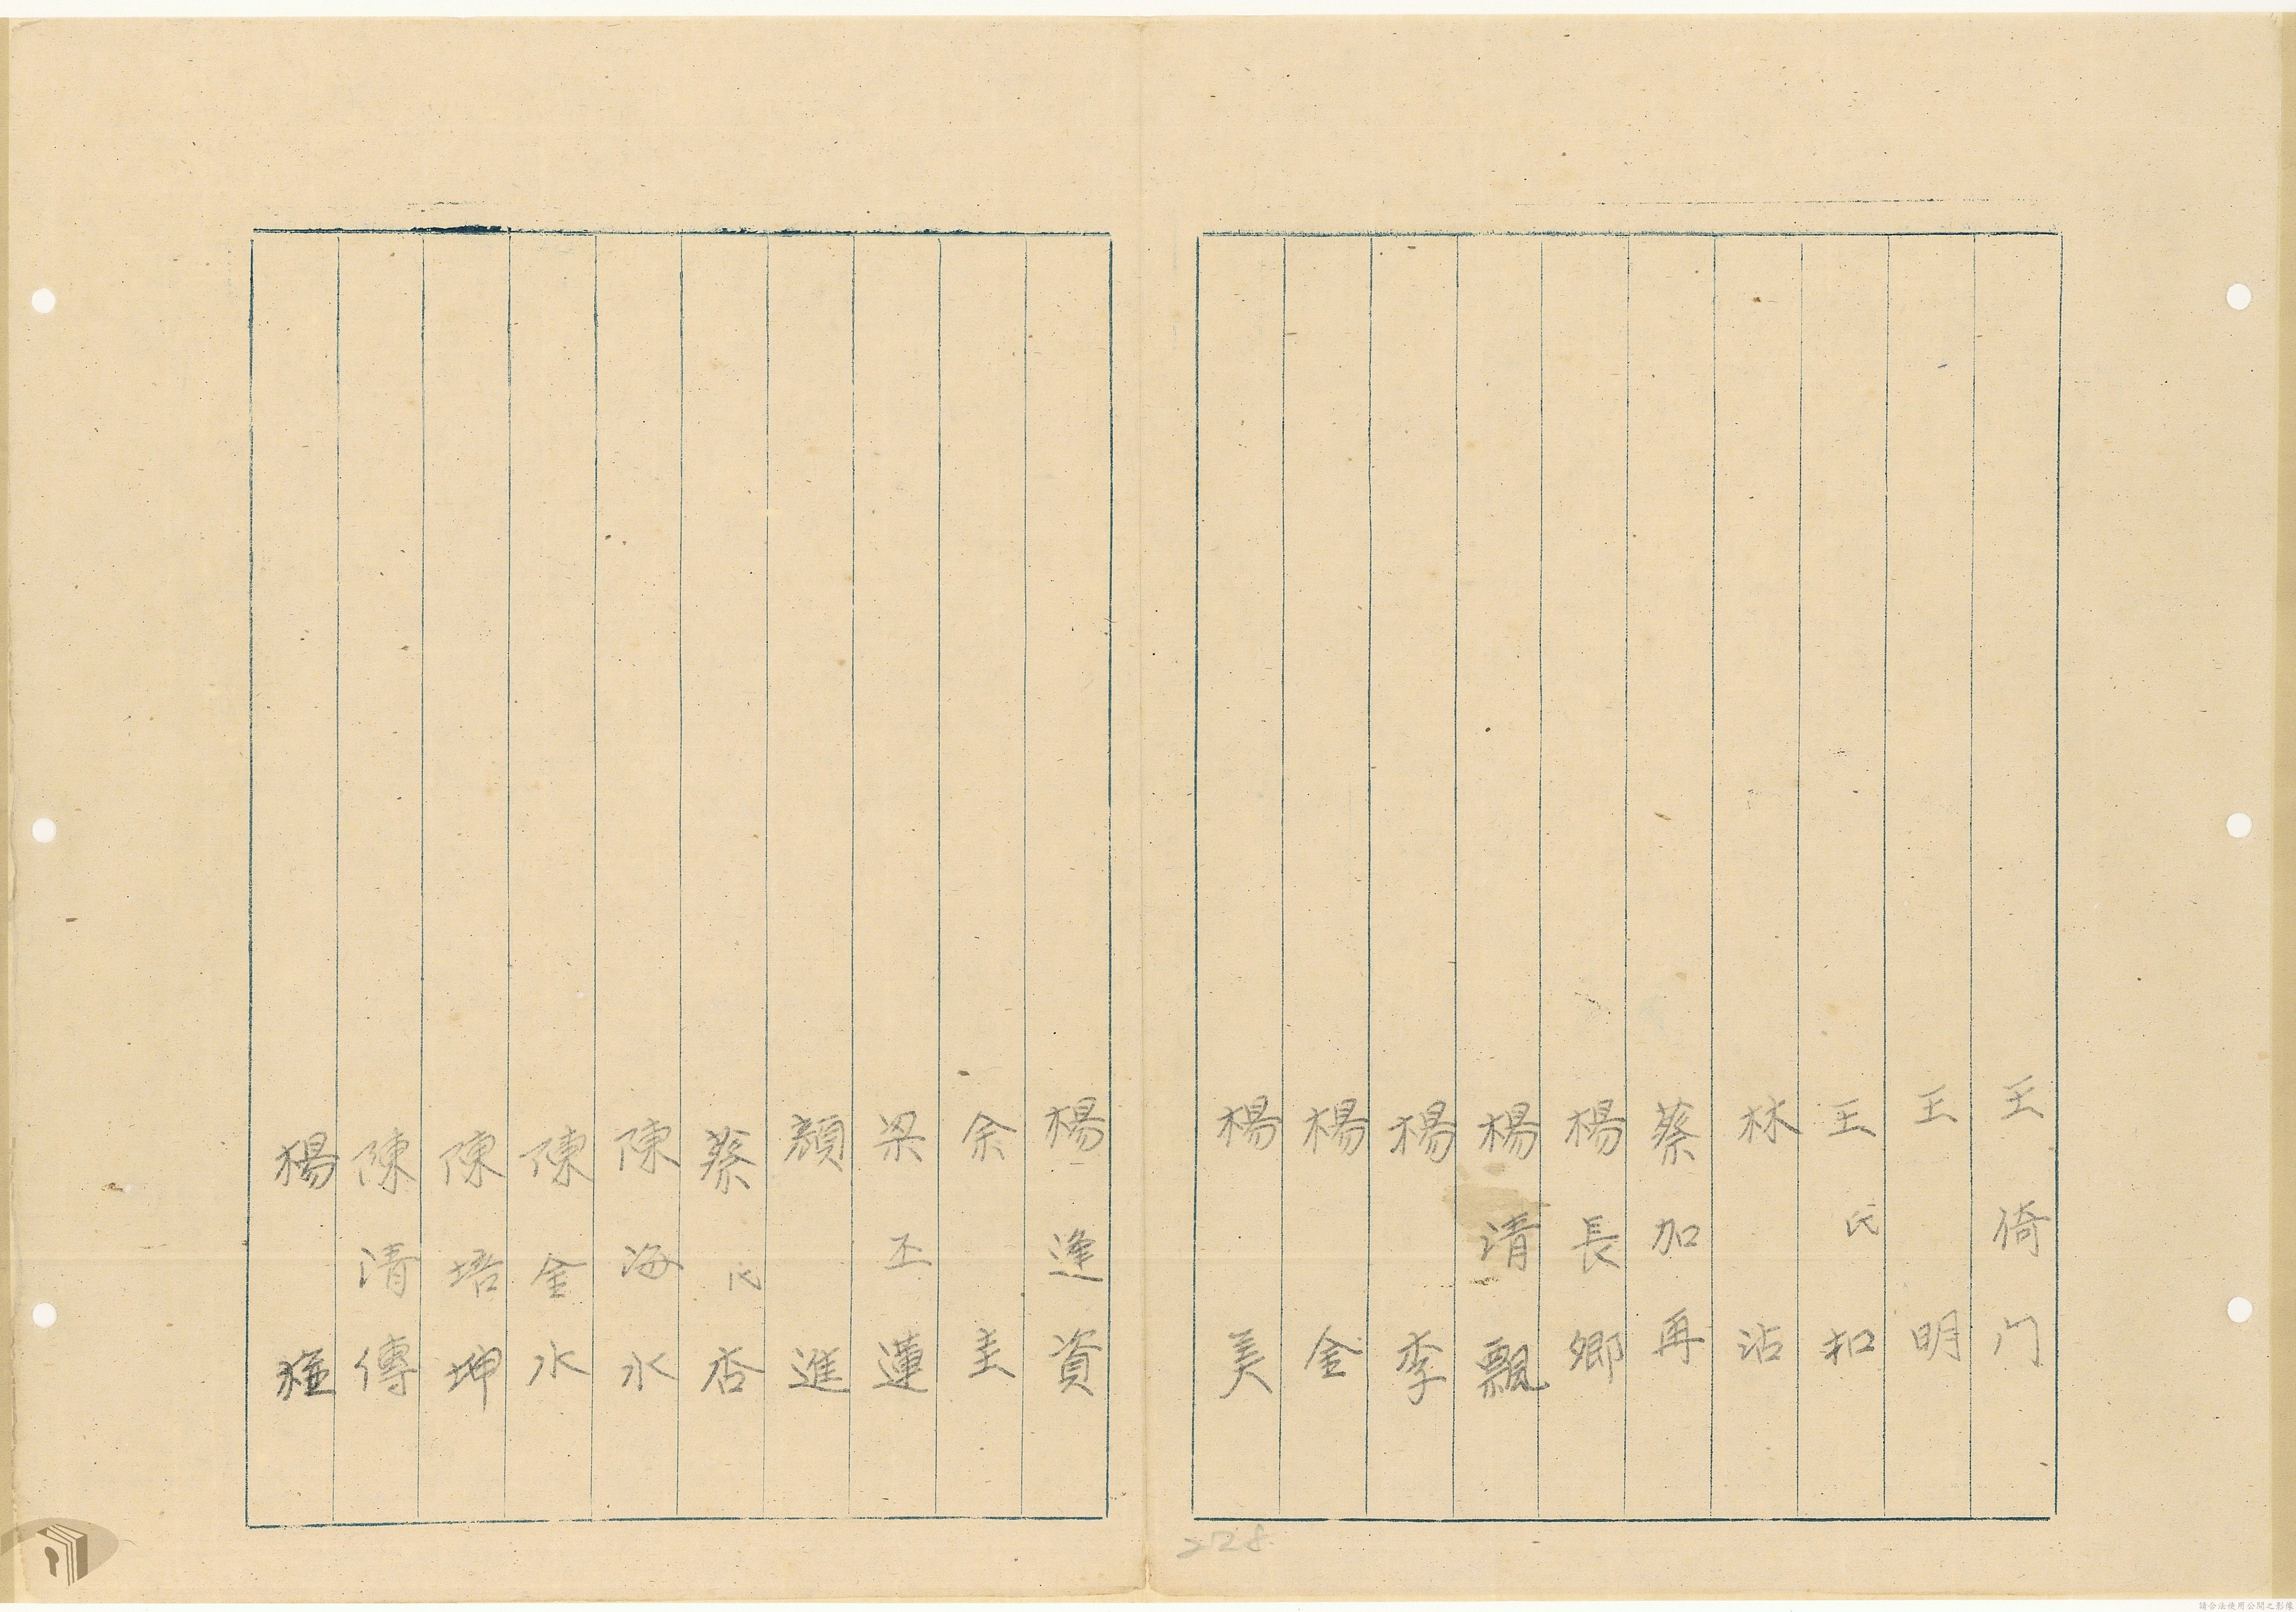 王倚门
王明
王氏扣
林沾
蔡加再
楊長卿
楊清飄
楊李
楊金
楊美
楊逢資
余圭
梁丕蓮
顏進
蔡氏杏
陳海水
陳金水
陳培坤
陳清傳
楊
228
請合法使用公開之影像